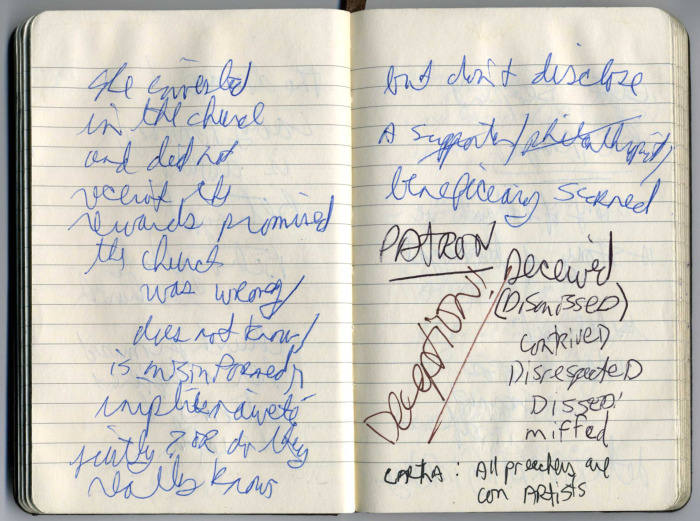 She invested
in the church
and did not
receive its
rewards promised
the church
was wrong/
does not know/
is misinformed,
naiveté
or do they
really know
but don't disclose
A supporter/philanthropist/
beneficiary scorned
PATRON
Deception!
Deceived
(Dismissed)
contrived
Disrespected
Dissed
miffed
: All preachers are
con Artists